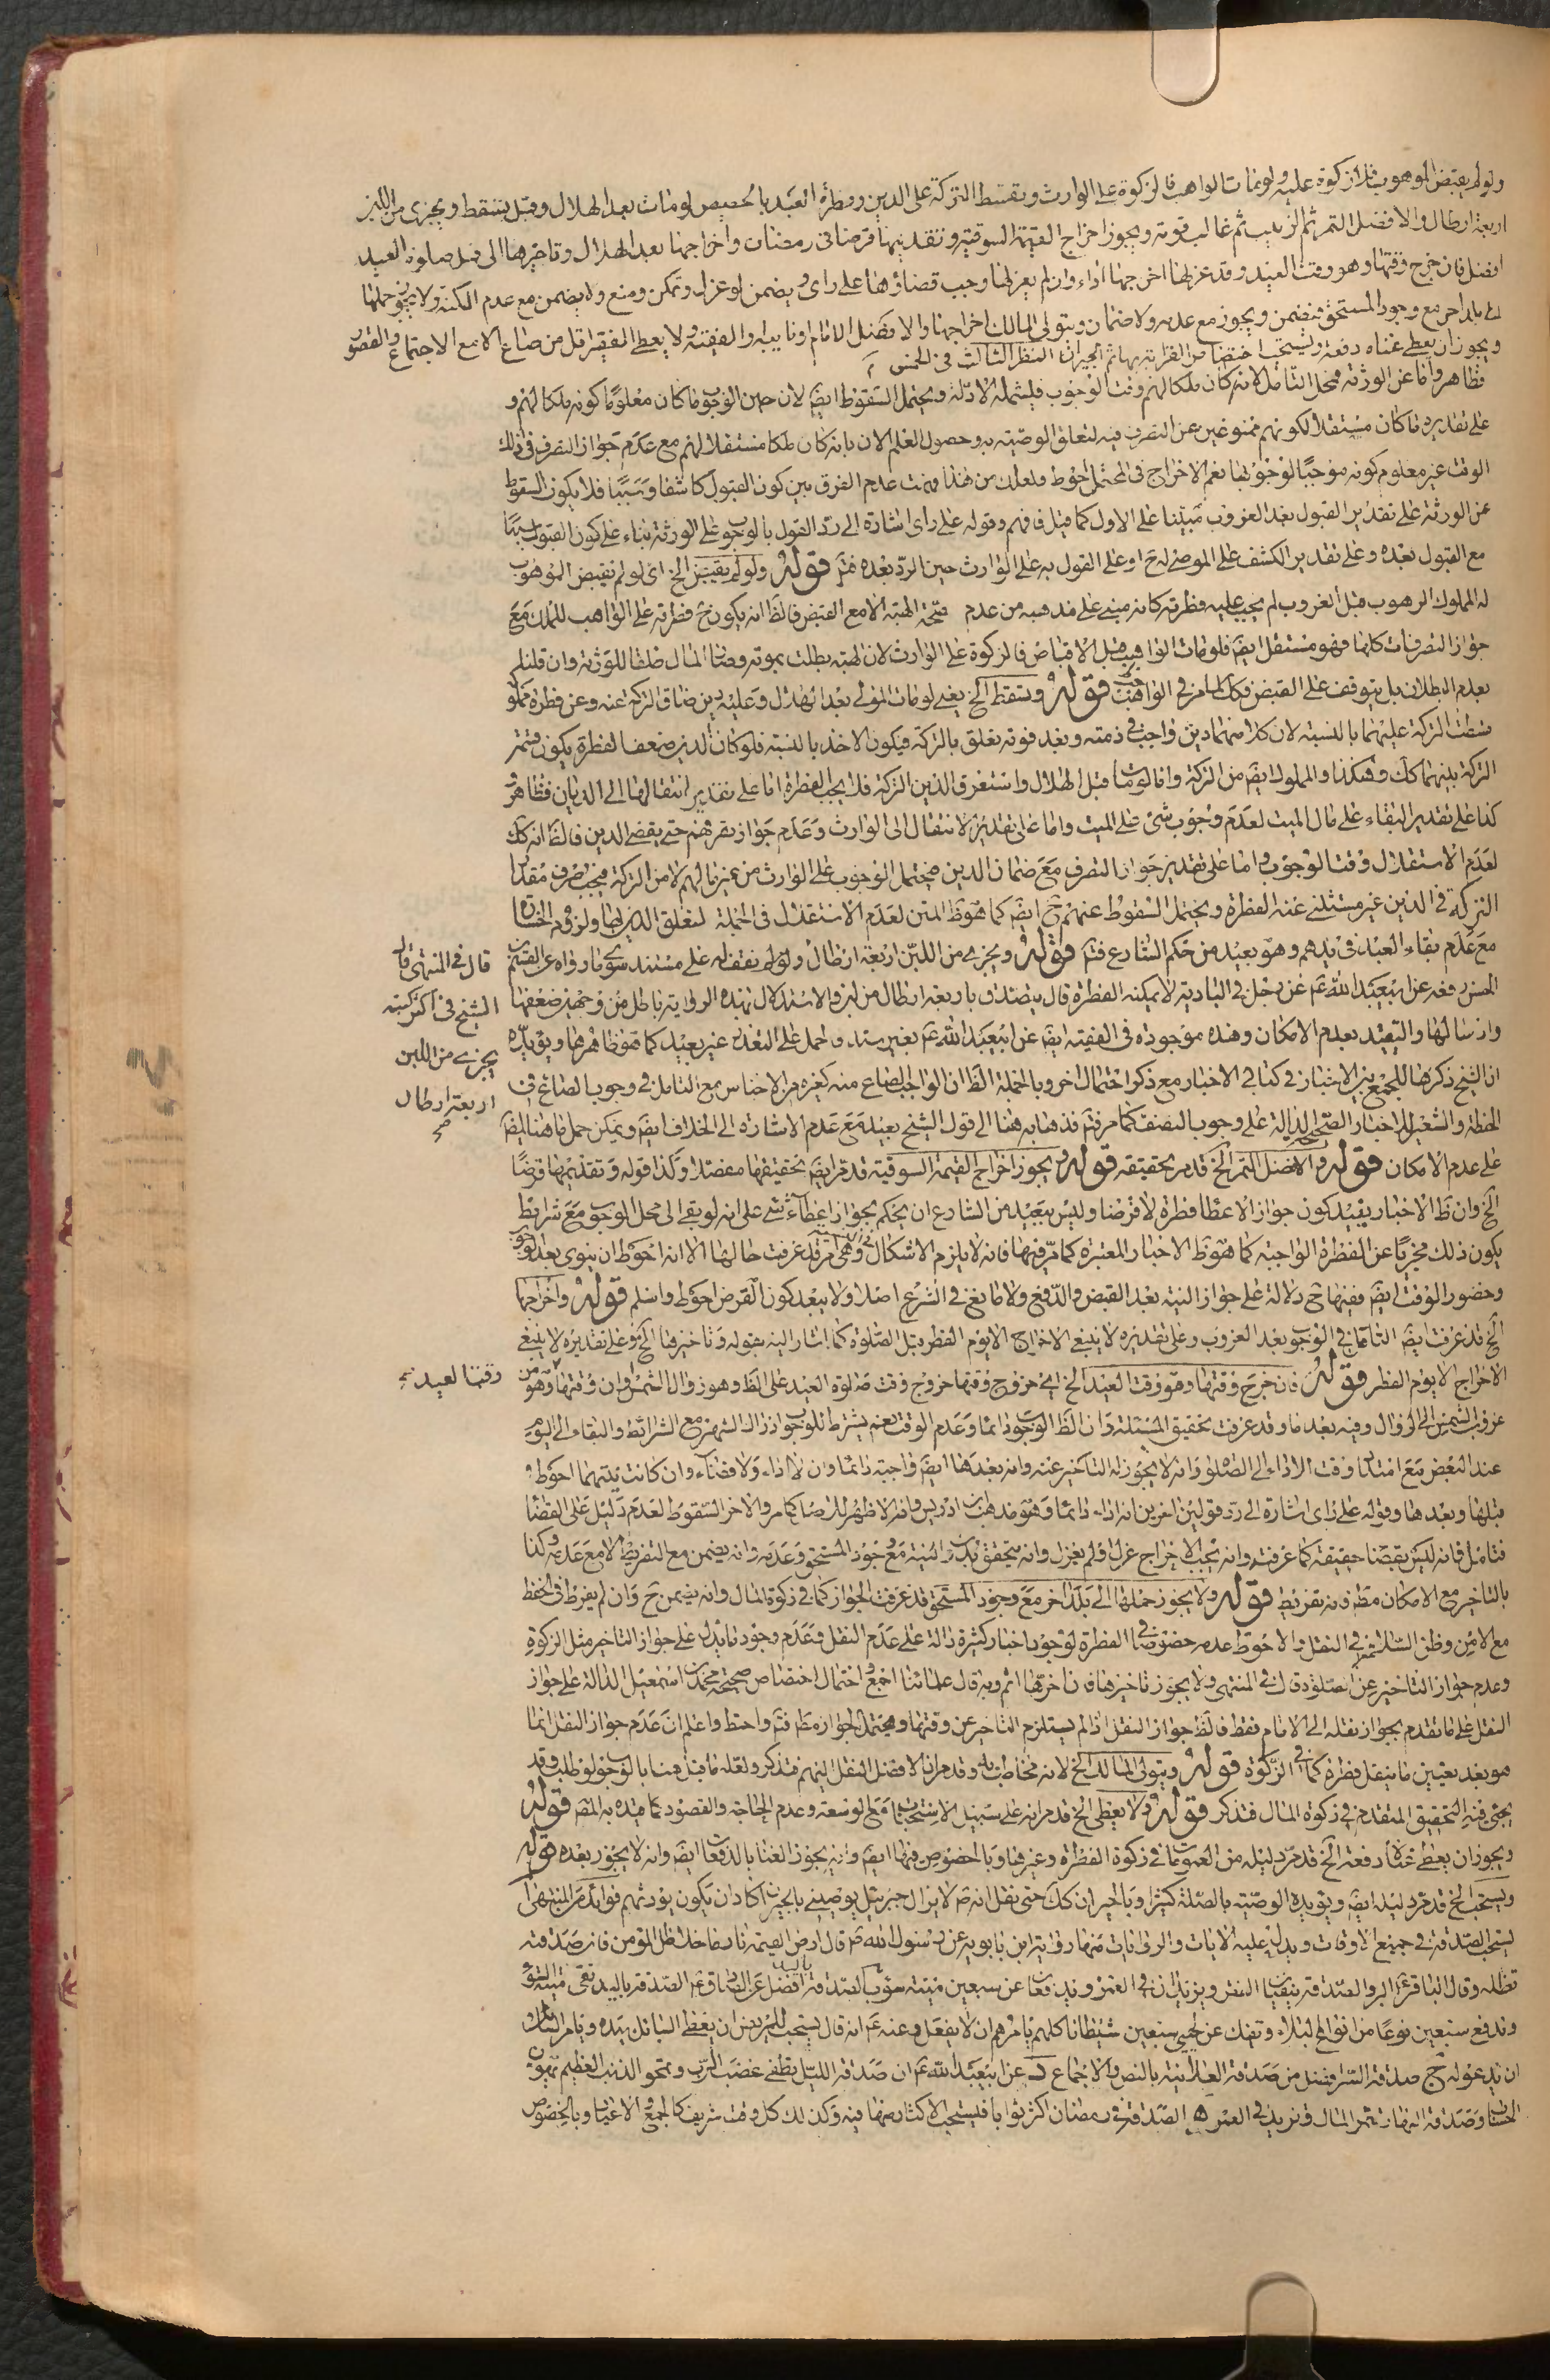 ولو لم يقبض الموهوب فلا زكوة عليه ولو مات الواهب فالزكوة على الوارث وتقسط التركة على الدين وفطرة العبد بالحصص لو مات بعد الهلال وقبله يسقط ويجزى من اللبن
اربعة ارطال والافضل التمر ثم الزبيب ثم غالب قوته ويجوز اخراج القيمة السوقية وتقديمها قرضا في رمضان واخراجها بعد الهلال وتاخيرها الى قبل صلوة العيد
افضل فان خرج وقتها وهو وقت العيد وقد عزلها اخرجها اداء وان لم يعزلها وجب قضاؤها على راى ويضمن لو عزل وتمكن ومنع ولا يضمن مع عدم المكنة ولا يجوز حملها
الى بلد اخر مع وجود المستحق فيضمن ويجوز مع عدمه ولا ضمان ويتولى المالك اخراجها والافضل الامام او نايبه والفقيه ولا يعطى الفقير اقل من صاع الا مع الاجتماع والقصور
ويجوز ان يعطى غناه دفعة ويستحب اختصاص القرابة بها ثم الجيران النظر الثالث في الخمس
فظاهر واما عن الورثة فمحل التامل لانه كان ملكا لهم وقت الوجوب فيشمله الادلة ويحتمل السقوط ايضا لان حين الوجوب ما كان معلوما كونه ملكا لهم و
على تقديره ما كان مستقلا لكونهم ممنوعين عن التصرف فيه لتعلق الوصية به وحصول العلم الان بانه كان ملكا مستقلا لهم مع عدم جواز التصرف في ذلك
الوقت غير معلوم كونه موجبا لوجوبها نعم الاخراج في المحتمل احوط ولعلك من هذا فهمت عدم الفرق بين كون القبول كاشفا وسببا فلا يكون السقوط
عن الورثة على تقدير القبول بعد الغروب مبنيا على الاول كما قيل فافهم وقوله على راى اشارة الى رد القول بالوجوب على الورثة بناء على كون القبول سببا
مع القبول بعده وعلى تقدير الكشف على الموصى له ح او على القول به على الوارث حين الرد بعده فتم قوله ولو لم يقبض الخ اى لو لم يقبض الموهوب
له المملوك الموهوب قبل الغروب لم يجب عليه فطرته كانه مبني على مذهبه من عدم صحة الهبة الا مع القبض فالظ انه يكون ح فطرته على الواهب للملك مع
جواز التصرفات كلها فهو مستقل ايضا فلو مات الواهب قبل الاقباض فالزكوة على الوارث لان الهبة بطلت بموته وصار المال طلقا للورثة وان قلنا
بعدم البطلان بل يتوقف على القبض فكك لما مر في الواهب قوله وتسقط الخ يعنى لو مات المولى بعد الهلال وعليه دين ضاق التركة عنه وعن فطرة مملوكه
قسطت التركة عليهما بالنسبة لان كلا منهما دين واجب في ذمته وبعد فوته تعلق بالتركة فيكون الاخذ بالنسبة فلو كان الدين ضعف الفطرة يكون قسمة
التركة بينهما كك وهكذا والمملوك ايضا من التركة واما لو مات قبل الهلال واستغرق الدين التركة فلا يجب الفطرة اما على تقدير انتقالها الى الديان فظاهر و
كذا على تقدير البقاء على مال الميت لعدم وجوب شئ على الميت واما على تقدير الانتقال الى الوارث وعدم جواز تصرفهم حتى يقضى الدين فالظ انه كك
لعدم الاستقلال وقت الوجوب واما على تقدير جواز التصرف مع ضمان الدين فيحتمل الوجوب على الوارث من غير مالهم لا من التركة فيجب صرف مقدار
التركة في الدين غير مستثنى عنه الفطرة ويحتمل السقوط عنهم ح ايضا كما هو ظ المتن لعدم الاستقلال في الجملة لتعلق الدين بها ولزوم الخسارة
مع عدم بقاء العبد في يدهم وهو بعيد من حكم الشارع فتم قوله ويجزى من اللبن اربعة ارطال ولم نقف له على مستند سوى ما رواه عن القسم بن
الحسن رفعه عن ابيعبد الله ع عن رجل في البادية لا يمكنه الفطرة قال يتصدق باربعة ارطال من لبن والاستدلال بهذه الرواية باطل من وجهين ضعفها
وارسالها والتقييد بعدم الامكان وهذه موجودة في الفقيه ايضا عن ابيعبد الله ع بغير سند وحمل على التعذر غير بعيد كما هو ظاهرها ويؤيده
ان الشيخ ذكرها للجمع بين الاخبار في كتابي الاخبار مع ذكر احتمال اخر وبالجملة الظ ان الواجب الصاع منه كغيره من الاجناس مع التامل في وجوب الصاع في
الحنطة والشعير للاخبار الصحيحة الدالة على وجوب النصف كما مر فتم فذهابه هنا الى قول الشيخ بعيد مع عدم الاشارة الى الخلاف ايضا ويمكن حمل ما هنا ايضا
على عدم الامكان قوله والافضل التمر الخ قد مر تحقيقه قوله ويجوز اخراج القيمة السوقية قد مر ايضا تحقيقها مفصلا وكذا قوله وتقديمها قرضا
الخ وان ظ الاخبار يفيد كون جواز الاعطا فطرة لا قرضا وليس ببعيد من الشارع ان يحكم بجواز اعطاء شئ على انه لو بقي الى محل الوجوب مع شرايط
يكون ذلك مجزيا عن الفطرة الواجبة كما هو ظ الاخبار المعتبرة كما مر فيها فانه لا يلزم الاشكال وقد عرفت حالها الا انه احوط ان ينوى بعد
وحضور الوقت ايضا ففيها ح دلالة على جواز النية بعد القبض والدفع ولا مانع في الشرع اصلا ولا يبعد كون القرض احوط واسلم قوله واخراجها
الخ قد عرفت ايضا التامل في الوجوب بعد الغروب وعلى تقديره لا ينبغي الاخراج الا يوم الفطر قبل الصلوة كما اشار اليه بقوله وتاخيرها الخ وعلى تقديره لا ينبغي
الاخراج الا يوم الفطر قوله فان خرج وقتها وهو وقت العيد الخ اى خروج وقتها خروج وقت صلوة العيد على الظ وهو زوال الشمس وان وقتها هو من
غروب الشمس الى الزوال وفيه بعد ما وقد عرفت تحقيق المسئلة وان الظ الوجوب دائما وعدم الوقت نعم بشرط للوجوب ادراك الشهر مع الشرائط والبقاء الى اليوم
عند البعض مع امتداد وقت الاداء الى الصلوة وانه لا يجوز له التاخير عنه وانه بعدها ايضا واجبة دائما وان لا اداء ولا قضاء وان كانت نيتهما احوط
قبلها وبعدها وقوله على راى اشارة الى رد قولين اخرين انه اداء دائما وهو مذهب ابن ادريس وانه الاظهر للرضا كما مر والاخر السقوط لعدم دليل على القضا
فتامل فانه ليس بقضا حقيقة كما عرفت وانه يجب الاخراج عزل او لم يعزل وانه يتحقق بدون النية مع وجود المستحق وعدمه وانه يضمن مع التفريط لا مع عدمه وكذا
بالتاخير مع الامكان مط فانه تفريط قوله ولا يجوز حملها الى بلد اخر مع وجود المستحق قد عرفت الجواز كما في زكوة المال وانه يضمن ح وان لم يفرط في الحفظ
مع الامن وظن السلامة في النقل والاحوط عدمه خصوصا في الفطرة لوجود اخبار كثيرة دالة على عدم النقل وعدم وجود ما يدل على جواز التاخير مثل الزكوة
وعدم جواز التاخير عن الصلوة قال في المنتهى ولا يجوز تاخيرها فان اخرها اثم وبه قال علمائنا اجمع واحتمال اختصاص صحيحة محمد بن اسمعيل الدالة على جواز
النقل على ما تقدم بجواز نقله الى الامام فقط فالظ جواز النقل اذا لم يستلزم التاخير عن وقتها ويحتمل الجواز مط فتم واحتط واعلم ان عدم جواز النقل انما
هو بعد تعيين ما ينقل فطرة كما في الزكوة قوله ويتولى المالك الخ لانه مخاطب به وقد مر ان الافضل النقل اليهم فتذكر ولعله ما قيل هنا بالوجوب لو طلب وقد
يجئ فيه التحقيق المتقدم في زكوة المال فتذكر قوله ولا يعطى الخ قد مر انه على سبيل الاستحباب مع التوسعة وعدم الحاجة والقصور كما قيده به المصنف قوله
ويجوز ان يعطى غناه دفعة الخ قد مر دليله من العمومات في زكوة الفطرة وغيرها وبالخصوص فيها ايضا وانه يجوز الغنا بالدفعات ايضا وانه لا يجوز بعده قوله
ويستحب الخ قد مر دليله ايضا ويؤيده الوصية بالصلة كثيرا وبالجيران كك حتى نقل انه ص لا يزال جبرئيل يوصيني بالجيران كاد ان يكون يورثهم فوائد من المنتهى ا
يستحب الصدقة في جميع الاوقات ويدل عليه الايات والروايات منها رواية ابن بابويه عن رسول الله ص قال ارض القيمة نار ما خلا ظل المؤمن فان صدقته
تظله وقال الباقر ع البر والصدقة ينفيان الفقر ويزيدان في العمر ويدفعان عن سبعين ميتة سوء ب الصدقة باليد افضل عن الصادق ع الصدقة باليد تقى ميتة السوء
وتدفع سبعين نوعا من انواع البلاء وتفك عن لحيي سبعين شيطانا كلهم يامرهم ان لا يفعل وعنه ع انه قال يستحب للمريض ان يعطى السائل بيده ويامر السائل
ان يدعو له ج صدقة السر افضل من صدقة العلانية بالنص والاجماع د عن ابيعبد الله ع ان صدقة الليل تطفي غضب الرب وتمحو الذنب العظيم وتهون
الحساب وصدقة النهار تثمر المال وتزيد في العمر ه الصدقة في رمضان اكثر ثوابا فليستحب الاكثار منها فيه وكذلك كل وقت شريف كالجمع والاعياد وبالخصوص
قال في المنتهى قال
الشيخ في اكثر كتبه
يجزى من اللبن
اربعة ارطال
صح
وقتها العيد